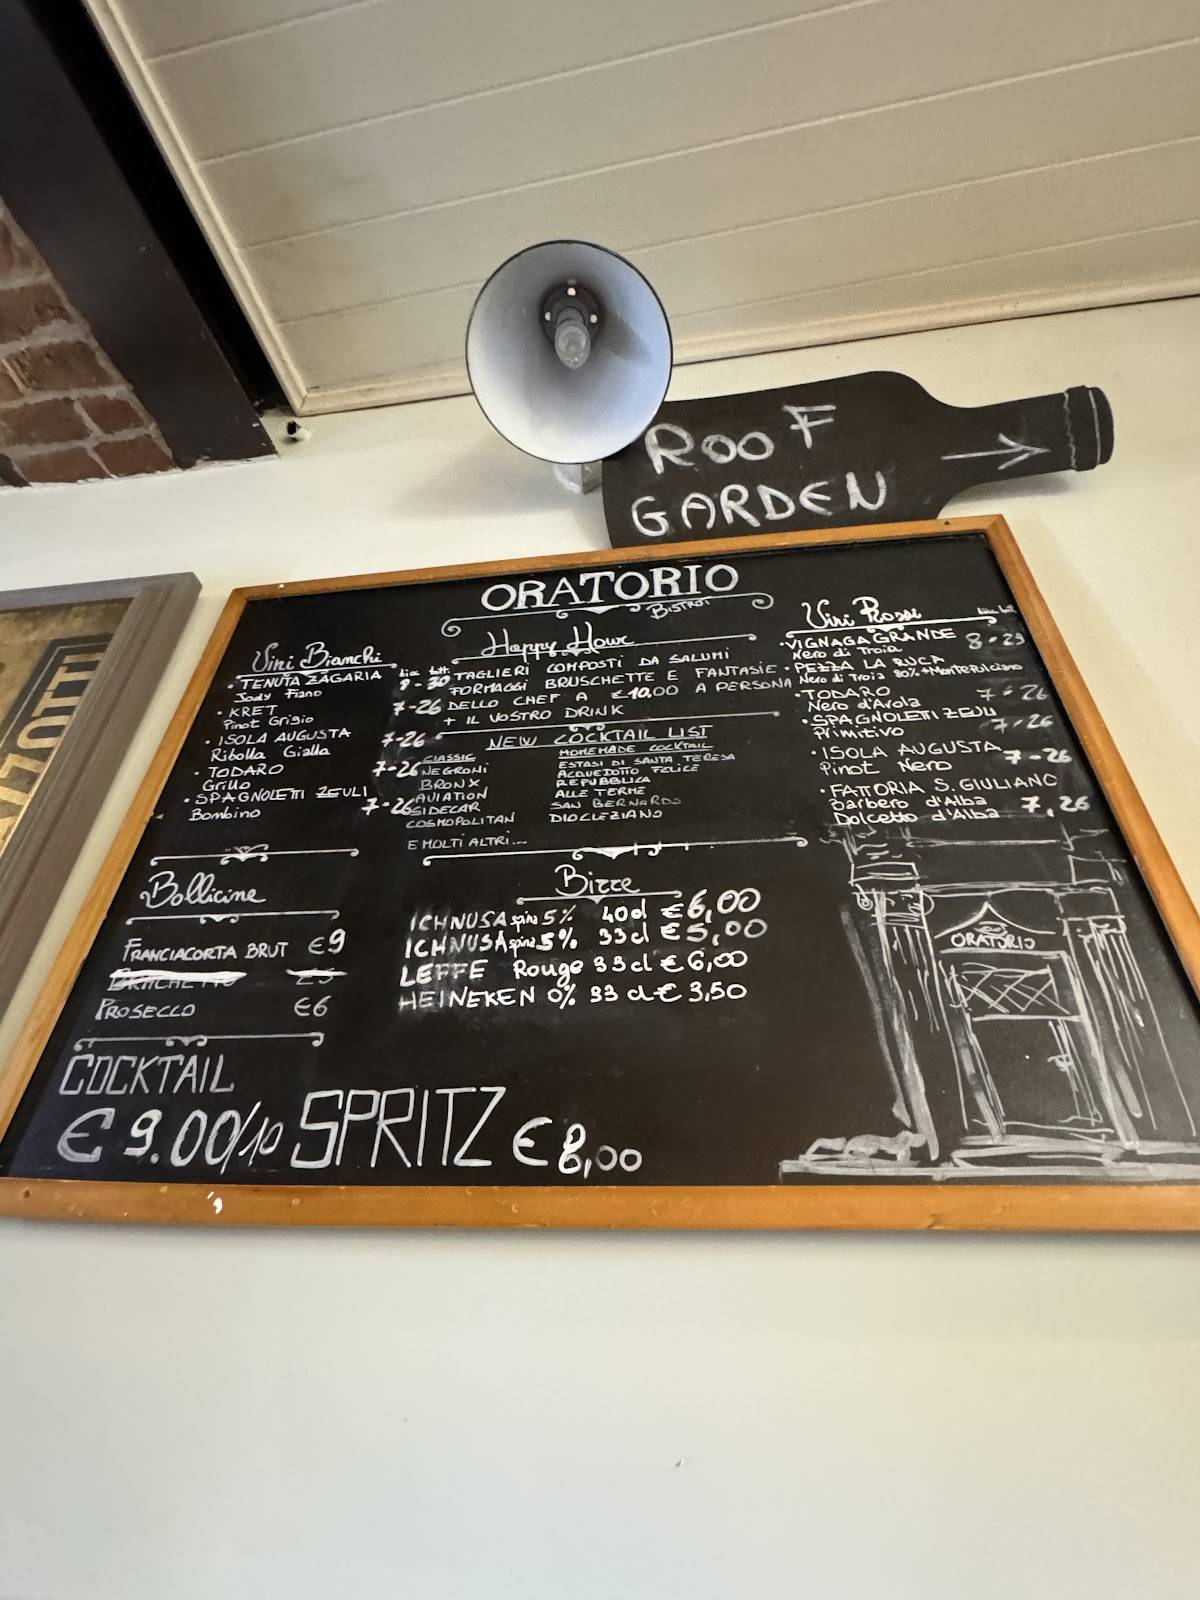 ROOF
GARDEN
ORATORIO
BISTROT
Vini Bianchi
bicc bott
• TENUTA ZAGARIA 8-30
Jody Fiano
• KRET 7-26
Pinot Grigio
• ISOLA AUGUSTA 7-26
Ribolla Gialla
• TODARO 7-26
Grillo
• SPAGNOLETTI ZEULI 7-26
Bombino
Bollicine
FRANCIACORTA BRUT €9
BRACHETTO €5
PROSECCO €6
COCKTAIL
€ 9.00/10 SPRITZ € 8,00
Happy Hour
TAGLIERI COMPOSTI DA SALUMI
FORMAGGI BRUSCHETTE E FANTASIE
DELLO CHEF A €10,00 A PERSONA
+ IL VOSTRO DRINK
NEW COCKTAIL LIST
CLASSIC
NEGRONI
BRONX
AVIATION
SIDECAR
COSMOPOLITAN
E MOLTI ALTRI...
HOMEMADE COCKTAIL
ESTASI DI SANTA TERESA
ACQUEDOTTO FELICE
REPUBBLICA
ALLE TERME
SAN BERNARDO
DIOCLEZIANO
Birre
ICHNUSA spina 5% 40cl € 6,00
ICHNUSA spina 5% 33cl € 5,00
LEFFE Rouge 33cl € 6,00
HEINEKEN 0% 33 cl € 3,50
Vini Rossi
• VIGNAGA GRANDE 8-29
Nero di Troia
• PEZZA LA RUCA
Nero di Troia 80% + MONTEPULCIANO
• TODARO 7-26
Nero d'Avola
• SPAGNOLETTI ZEULI 7-26
Primitivo
• ISOLA AUGUSTA 7-26
Pinot Nero
• FATTORIA S. GIULIANO
Barbero d'Alba 7,26
Dolcetto d'Alba
ORATORIO